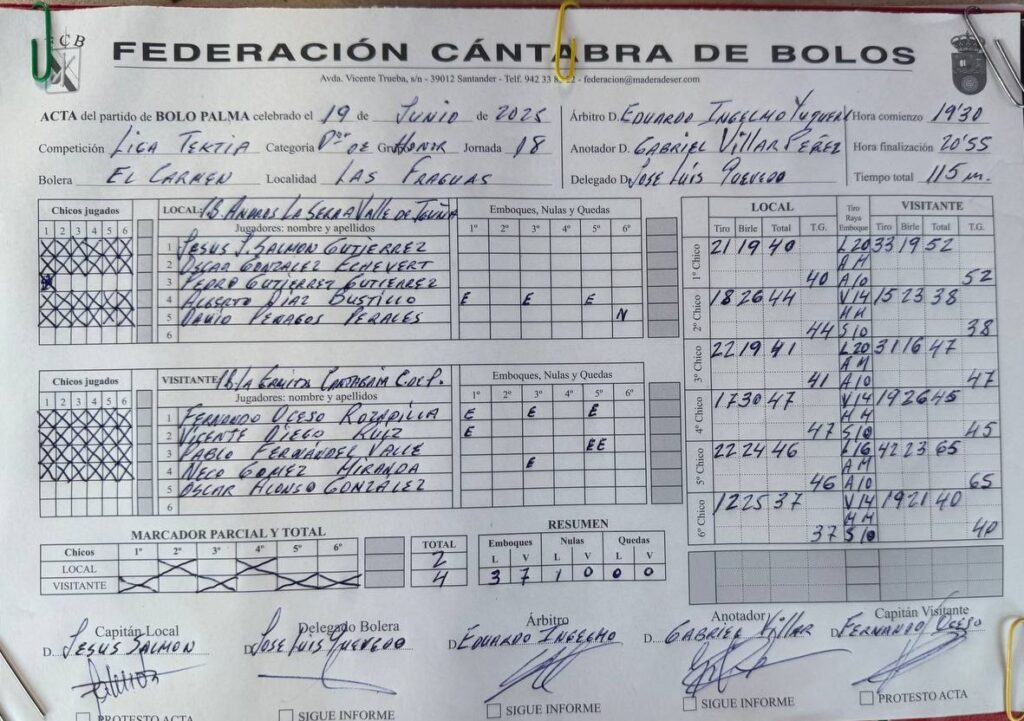 FCB
FEDERACIÓN CÁNTABRA DE BOLOS
Avda. Vicente Trueba, s/n - 39012 Santander - Telf. 942 33 - federacion@maderadeser.com
ACTA del partido de BOLO PALMA celebrado el 19 de Junio de 2025
Competición LIGA TERTIA Categoría Dºr DE GruHONOR Jornada 18
Bolera EL CARMEN Localidad LAS FRAGUAS
Árbitro D. EDUARDO INGELMO
Anotador D. GABRIEL VILLAR PÉREZ
Delegado D. JOSE LUÍS QUEVEDO
Hora comienzo 19'30
Hora finalización 20'55
Tiempo total 115 m.
Chicos jugados
1 2 3 4 5 6
LOCAL: P.B. ANDROS LA SERRA VALLE DE
Jugadores: nombre y apellidos
1 JESUS J. SALMON GUTIERREZ
2 OSCAR GONZALEZ ECHEVERT
3 PEDRO GUTIERREZ GUTIERREZ
4 ALBERTO DIAZ BUSTILLO
5 DAVID PENAGOS PERALES
6
Emboques, Nulas y Quedas
1º 2º 3º 4º 5º 6º
E E E
N
Chicos jugados
1 2 3 4 5 6
VISITANTE P.B. LA ERMITA CANTABRIA
Jugadores: nombre y apellidos
1 FERNANDO OCESO ROZADILLA
2 VICENTE DIEGO RUIZ
3 PABLO FERNANDEZ VALLE
4 NECO GOMEZ MIRANDA
5 OSCAR ALONSO GONZALEZ
6
Emboques, Nulas y Quedas
1º 2º 3º 4º 5º 6º
E E E
E
EE
E
LOCAL Tiro Raya Emboque VISITANTE
Tiro Birle Total T.G. Tiro Birle Total T.G.
1º Chico 21 19 40 L20 33 19 52
A M
40 A10 52
2º Chico 18 26 44 V14 15 23 38
M M
44 S10 38
3º Chico 22 19 41 L20 31 16 47
A M
41 A10 47
4º Chico 17 30 47 V14 19 26 45
M M
47 S10 45
5º Chico 22 24 46 L16 42 23 65
A M
46 A10 65
6º Chico 12 25 37 V14 19 21 40
M M
37 S10 40
MARCADOR PARCIAL Y TOTAL
Chicos 1º 2º 3º 4º 5º 6º TOTAL
LOCAL X X 2
VISITANTE X X X X 4
RESUMEN
Emboques Nulas Quedas
L V L V L V
3 7 1 0 0 0
Capitán Local
D. JESUS SALMON
Delegado Bolera
D. JOSE LUIS QUEVEDO
Árbitro
D. EDUARDO INGELMO
Anotador
D. GABRIEL VILLAR
Capitán Visitante
D. FERNANDO OCESO
PROTESTO ACTA
SIGUE INFORME
SIGUE INFORME
SIGUE INFORME
PROTESTO ACTA